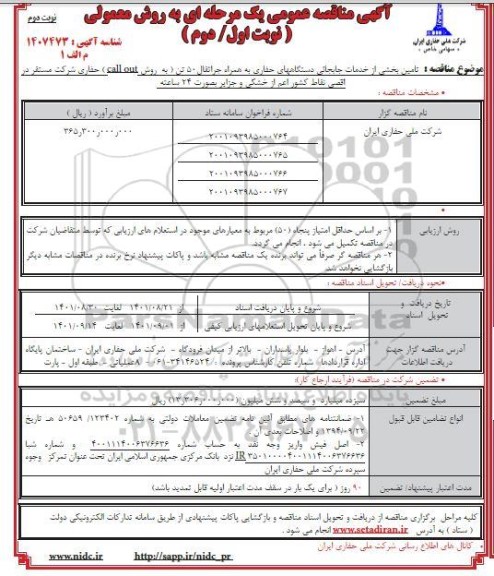 آگهی مناقصه عمومی یک مرحله ای به روش معمولی
( نوبت اول/ دوم )
نوبت دوم
شناسه آگهی : ۱۴۰۷۴۷۳
م الف ۱
شرکت ملی حفاری ایران
« سهامی خاص »
موضوع مناقصه : تامین بخشی از خدمات جابجائی دستگاههای حفاری به همراه جراثقال ۵۰ تن ( به روش call out ) حفاری شرکت مستقر در
اقصی نقاط کشور اعم از خشکی و جزایر بصورت ۲۴ ساعته.
• مشخصات مناقصه :
نام مناقصه گزار
شماره فراخوان سامانه ستاد
مبلغ برآورد ( ریال )
شرکت ملی حفاری ایران
۲۰۰۱۰۹۳۹۸۵۰۰۰۷۶۴
۳۶۵٫۳۰۰٫۰۰۰٫۰۰۰
۲۰۰۱۰۹۳۹۸۵۰۰۰۷۶۵
۲۰۰۱۰۹۳۹۸۵۰۰۰۷۶۶
۲۰۰۱۰۹۳۹۸۵۰۰۰۷۶۷
روش ارزیابی
۱- بر اساس حداقل امتیاز پنجاه (۵۰) مربوط به معیارهای موجود در استعلام های ارزیابی که توسط متقاضیان شرکت
در مناقصه تکمیل می شود ، انجام می گردد.
۲- هر مناقصه گر صرفاً می تواند برنده یک مناقصه مشابه باشد و پاکات پیشنهاد نرخ برنده در مناقصات مشابه دیگر
بازگشایی نخواهد شد.
•نحوه دریافت/ تحویل اسناد مناقصه :
تاریخ دریافت و
تحویل اسناد
شروع و پایان دریافت اسناد
از ۱۴۰۱/۰۸/۲۱ لغایت ۱۴۰۱/۰۸/۳۰
شروع و پایان تحویل استعلامهای ارزیابی کیفی
از ۱۴۰۱/۰۹/۰۱ لغایت ۱۴۰۱/۰۹/۱۴
آدرس مناقصه گزار جهت
دریافت اطلاعات
آدرس - اهواز - بلوار پاسداران - بالاتر از میدان فرودگاه - شرکت ملی حفاری ایران - ساختمان پایگاه
عملیاتی - طبقه اول - پارت
اداره قراردادها - شماره تلفن کارشناس پرونده : ۳۴۱۴۶۵۲۴-۰۶۱
• تضمین شرکت در مناقصه (فرآیند ارجاع کار)
مبلغ تضمین
انواع تضامین قابل قبول
۱- ضمانتنامه های مطابق آئین نامه تضمین معاملات دولتی به شماره ۱۲۳۴۰۲/ت ۵۰۶۵۹ هـ تاریخ
۱۳۹۴/۰۹/۲۲ و اصلاحات بعدی آن
۲- اصل فیش واریز وجه نقد به حساب شماره ۴۰۰۱۱۱۴۰۰۶۳۷۶۶۳۶ و شماره شبا
نزد بانک مرکزی جمهوری اسلامی ایران تحت عنوان تمرکز وجوه
سپرده شرکت ملی حفاری ایران
مدت اعتبار پیشنهاد/ تضمین
۹۰ روز ( برای یک بار در سقف مدت اعتبار اولیه قابل تمدید باشد)
کلیه مراحل برگزاری مناقصه از دریافت و تحویل اسناد مناقصه و بازگشایی پاکات پیشنهادی از طریق سامانه تدارکات الکترونیکی دولت
( ستاد ) به آدرس www.setadiran.ir انجام می شود .
• کانال های اطلاع رسانی شرکت ملی حفاری ایران
http://sapp.ir/nidc_pr
www.nidc.ir